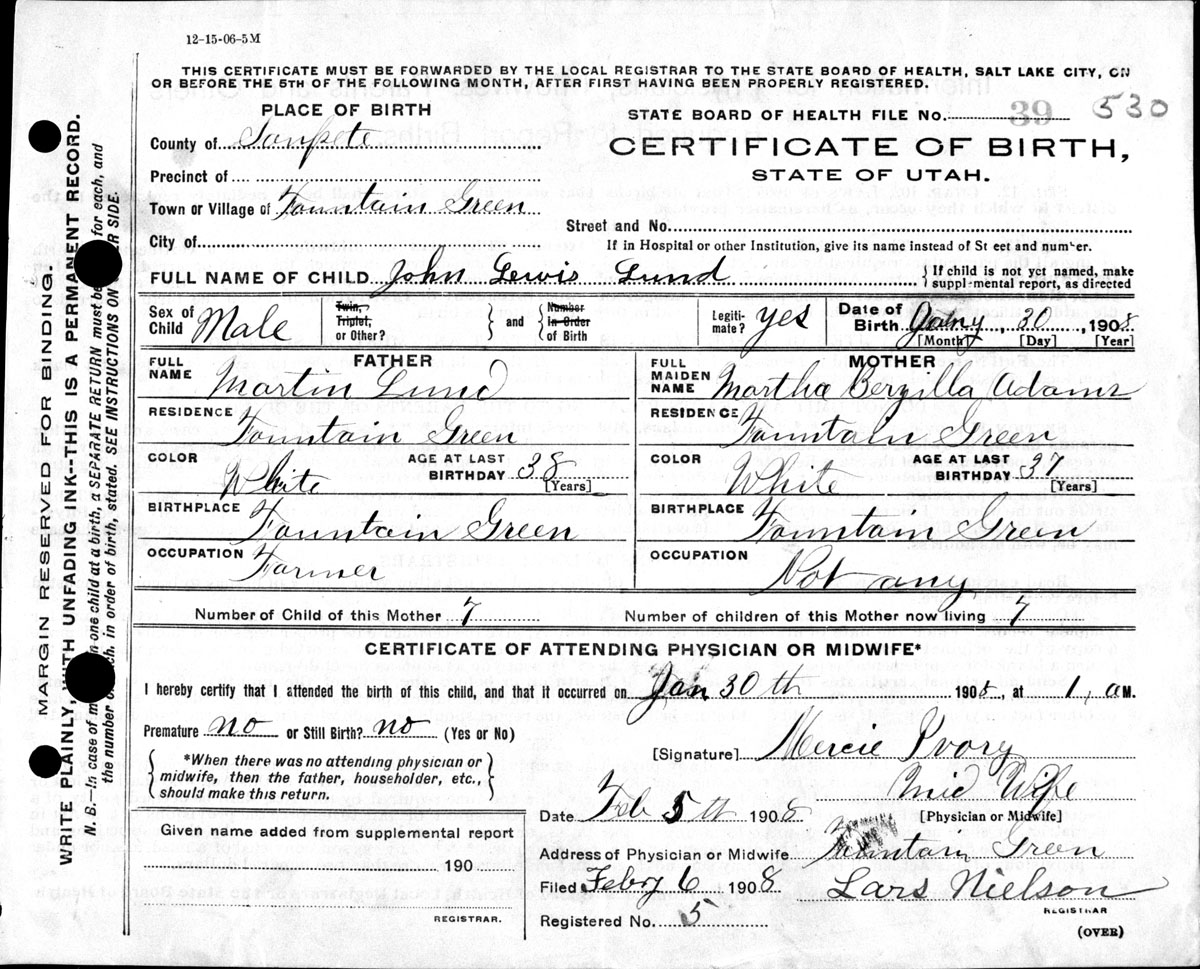 12-15-06-5M
THIS CERTIFICATE MUST BE FORWARDED BY THE LOCAL REGISTRAR TO THE STATE BOARD OF HEALTH, SALT LAKE CITY, ON
OR BEFORE THE 5TH OF THE FOLLOWING MONTH, AFTER FIRST HAVING BEEN PROPERLY REGISTERED.
PLACE OF BIRTH
STATE BOARD OF HEALTH FILE No. 39 530
County of Sanpete
CERTIFICATE OF BIRTH,
STATE OF UTAH.
Precinct of
Town or Village of Fountain Green
Street and No.
City of
If in Hospital or other Institution, give its name instead of St eet and number.
FULL NAME OF CHILD John Lewis Lund
} If child is not yet named, make
supplemental report, as directed
Sex of Child Male
Twin, Triplet, or Other? } and { Number In Order of Birth
Legiti-mate? yes
Date of Birth Jany, 30, 1908
[Month] [Day] [Year]
FATHER
FULL NAME Martin Lund
MOTHER
FULL MAIDEN NAME Martha Berzilla Adams
RESIDENCE Fountain Green
RESIDENCE Fountain Green
COLOR White AGE AT LAST BIRTHDAY 38 [Years]
COLOR White AGE AT LAST BIRTHDAY 37 [Years]
BIRTHPLACE Fountain Green
BIRTHPLACE Fountain Green
OCCUPATION Farmer
OCCUPATION Not any
Number of Child of this Mother 7
Number of children of this Mother now living 7
CERTIFICATE OF ATTENDING PHYSICIAN OR MIDWIFE*
I hereby certify that I attended the birth of this child, and that it occurred on Jan 30th 1908, at 1, a M.
Premature? no or Still Birth? no (Yes or No)
[Signature] Mercie Ivory
Mid Wife
[Physician or Midwife]
{ *When there was no attending physician or
midwife, then the father, householder, etc.,
should make this return. }
Date Feb 5th 1908
Given name added from supplemental report
190
REGISTRAR.
Address of Physician or Midwife Fountain Green
Filed Febry 6 1908 Lars Nielson
REGISTRAR
Registered No. 5
(OVER)
MARGIN RESERVED FOR BINDING.
WRITE PLAINLY, WITH UNFADING INK--THIS IS A PERMANENT RECORD.
N. B.—In case of m n one child at a birth, a SEPARATE RETURN must be for each, and
the number h, in order of birth, stated. SEE INSTRUCTIONS ON R SIDE.